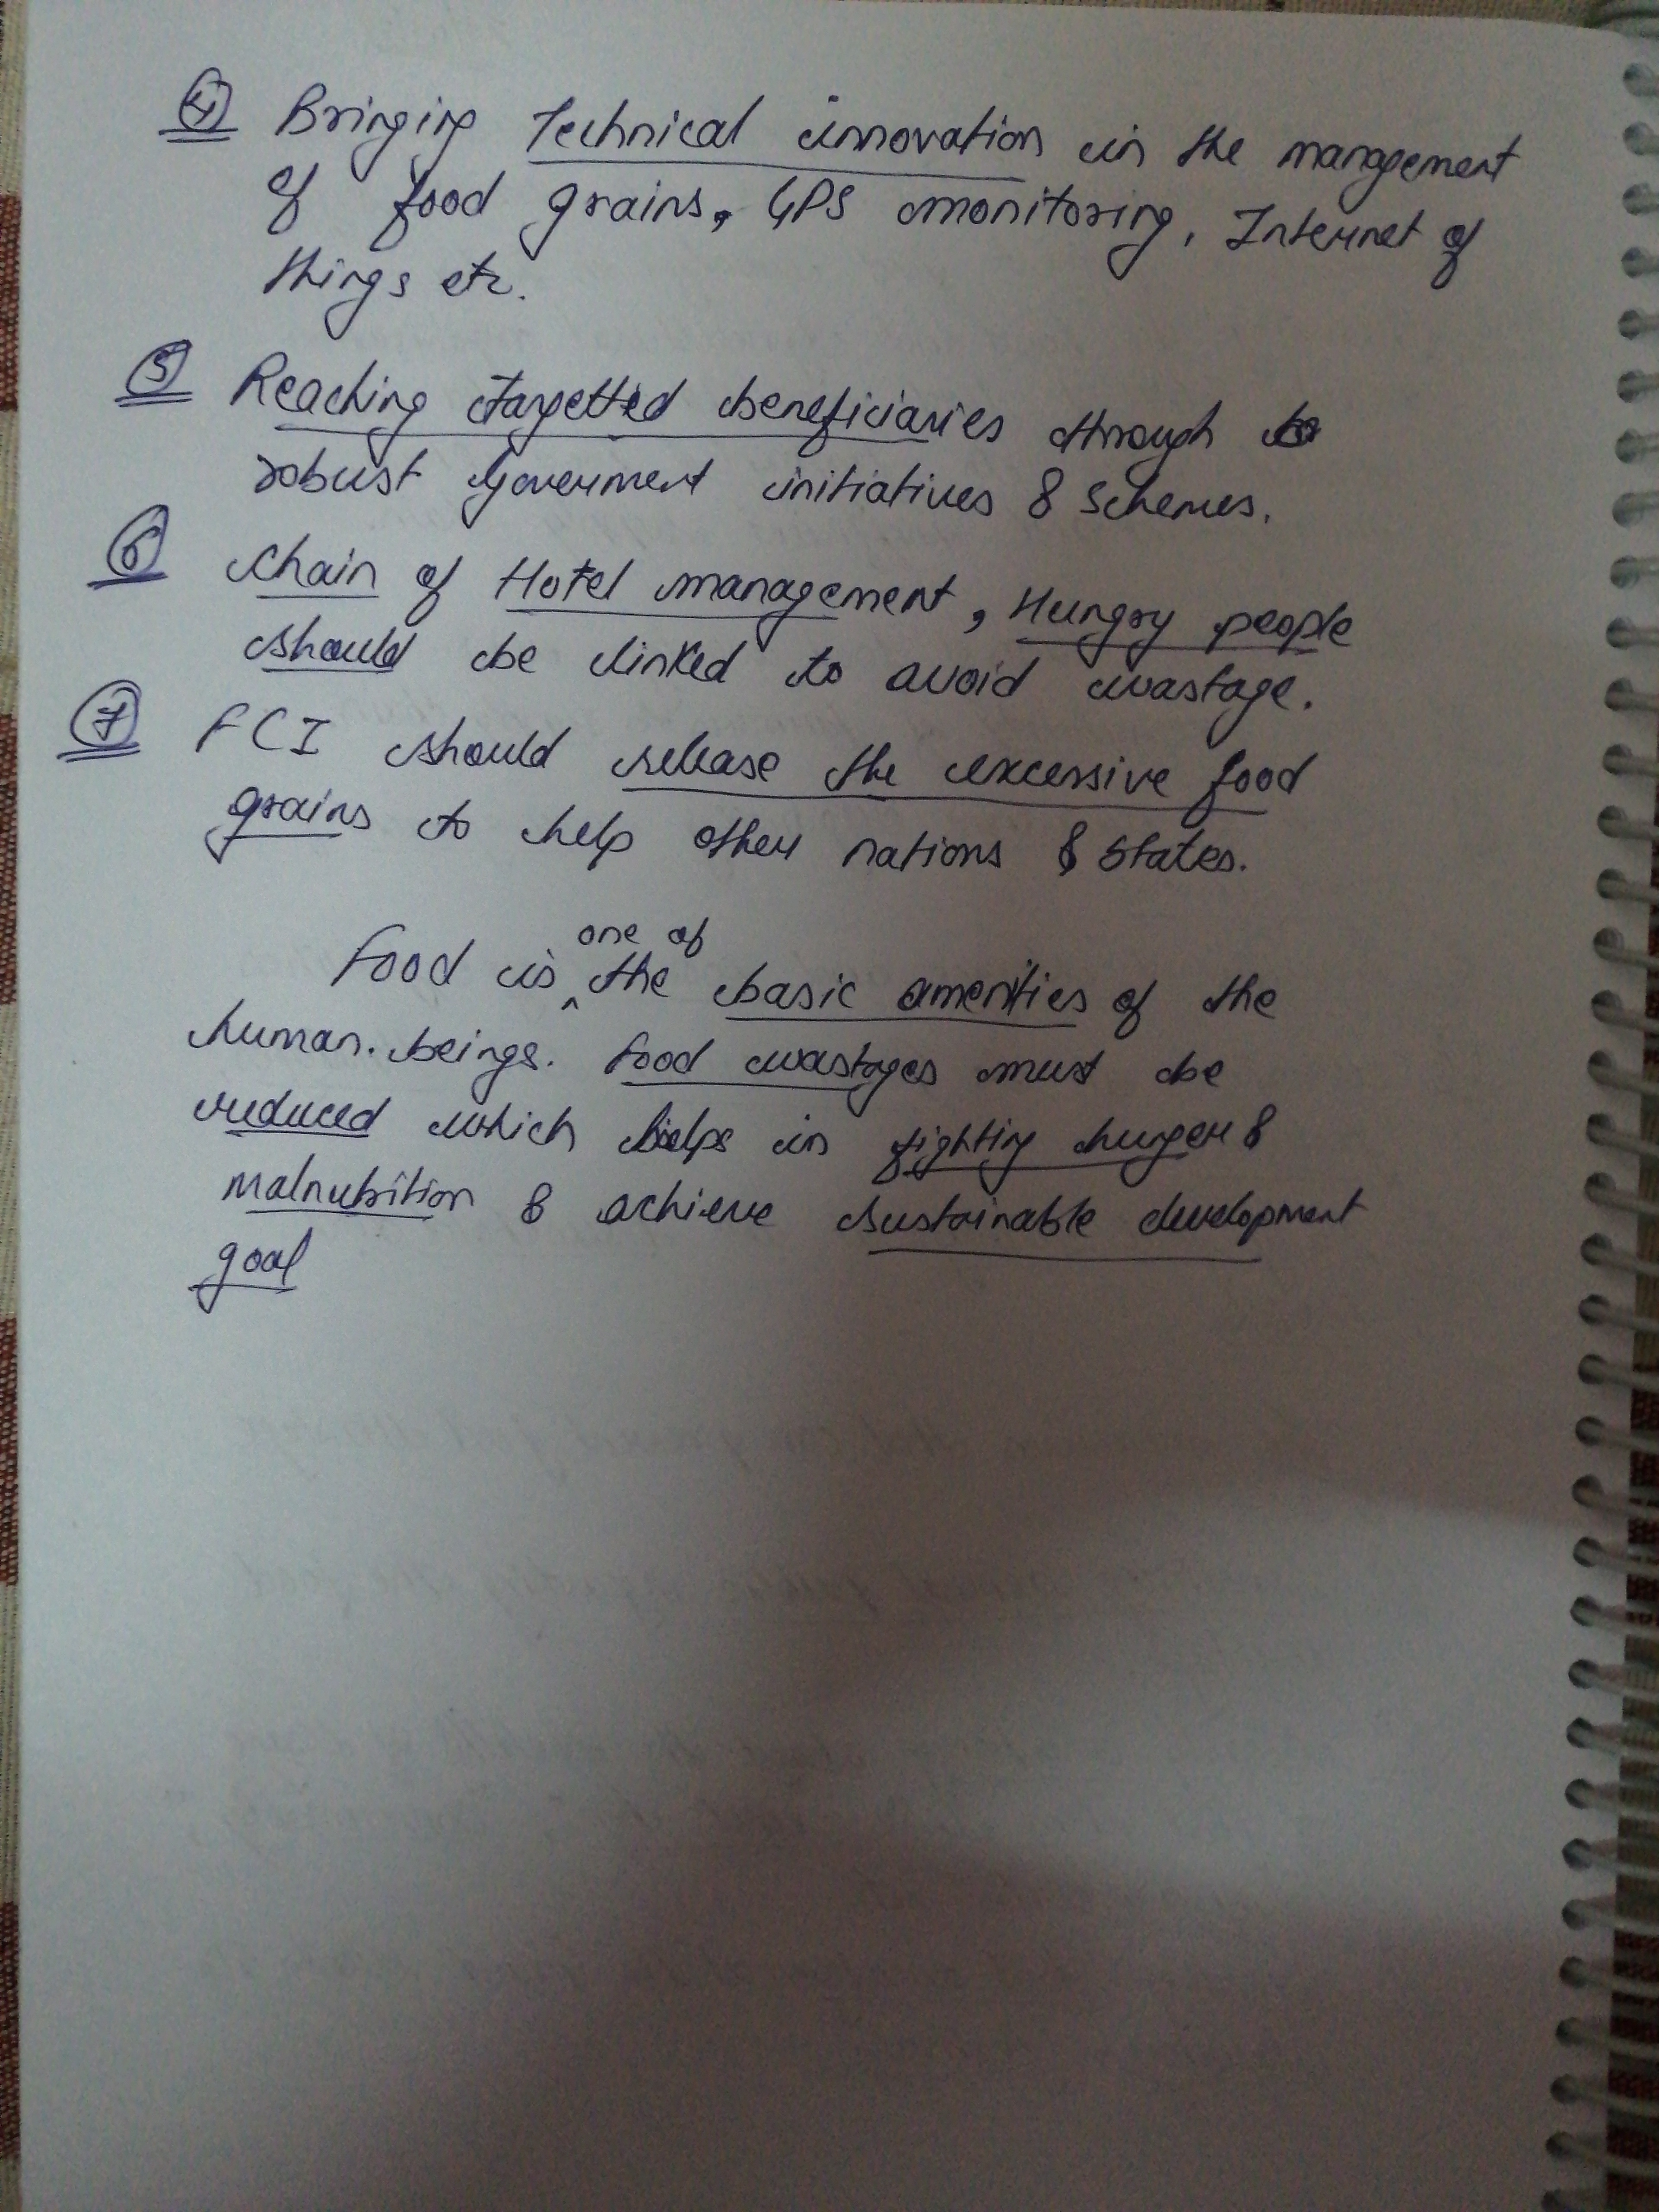 ④ Bringing Technical innovation in the management
of food grains, GPS monitoring, Internet of
things etc.
⑤ Reaching targetted beneficiaries through
robust Goverment initiatives & Schemes.
⑥ Chain of Hotel management, Hungry people
should be linked to avoid wastage.
⑦ FCI should release the excessive food
grains to help other nations & States.
one of
Food is ^ the basic amenities of the
human. beings. Food wastages must be
reduced which helps in fighting hunger &
malnutrition & achieve sustainable development
goal